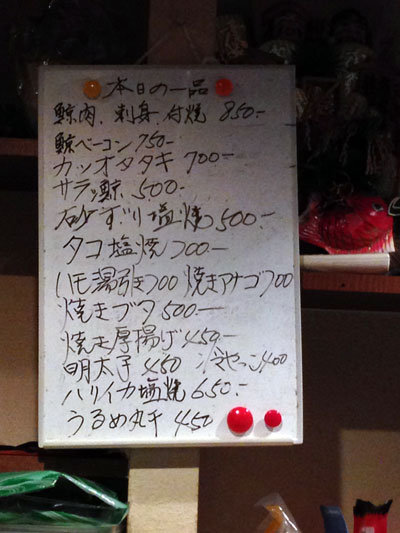 本日の一品
鯨肉、刺身、付焼 850.-
鯨ベーコン 750.-
カツオタタキ 700.-
サラシ鯨 500.-
砂ずり塩焼 500.-
タコ塩焼 700.-
ハモ湯引き 700 焼きアナゴ 700
焼きブタ 500.-
焼き厚揚げ 450.-
明太子 450 冷やっこ 400
ハリイカ塩焼 650.-
うるめ丸干 450